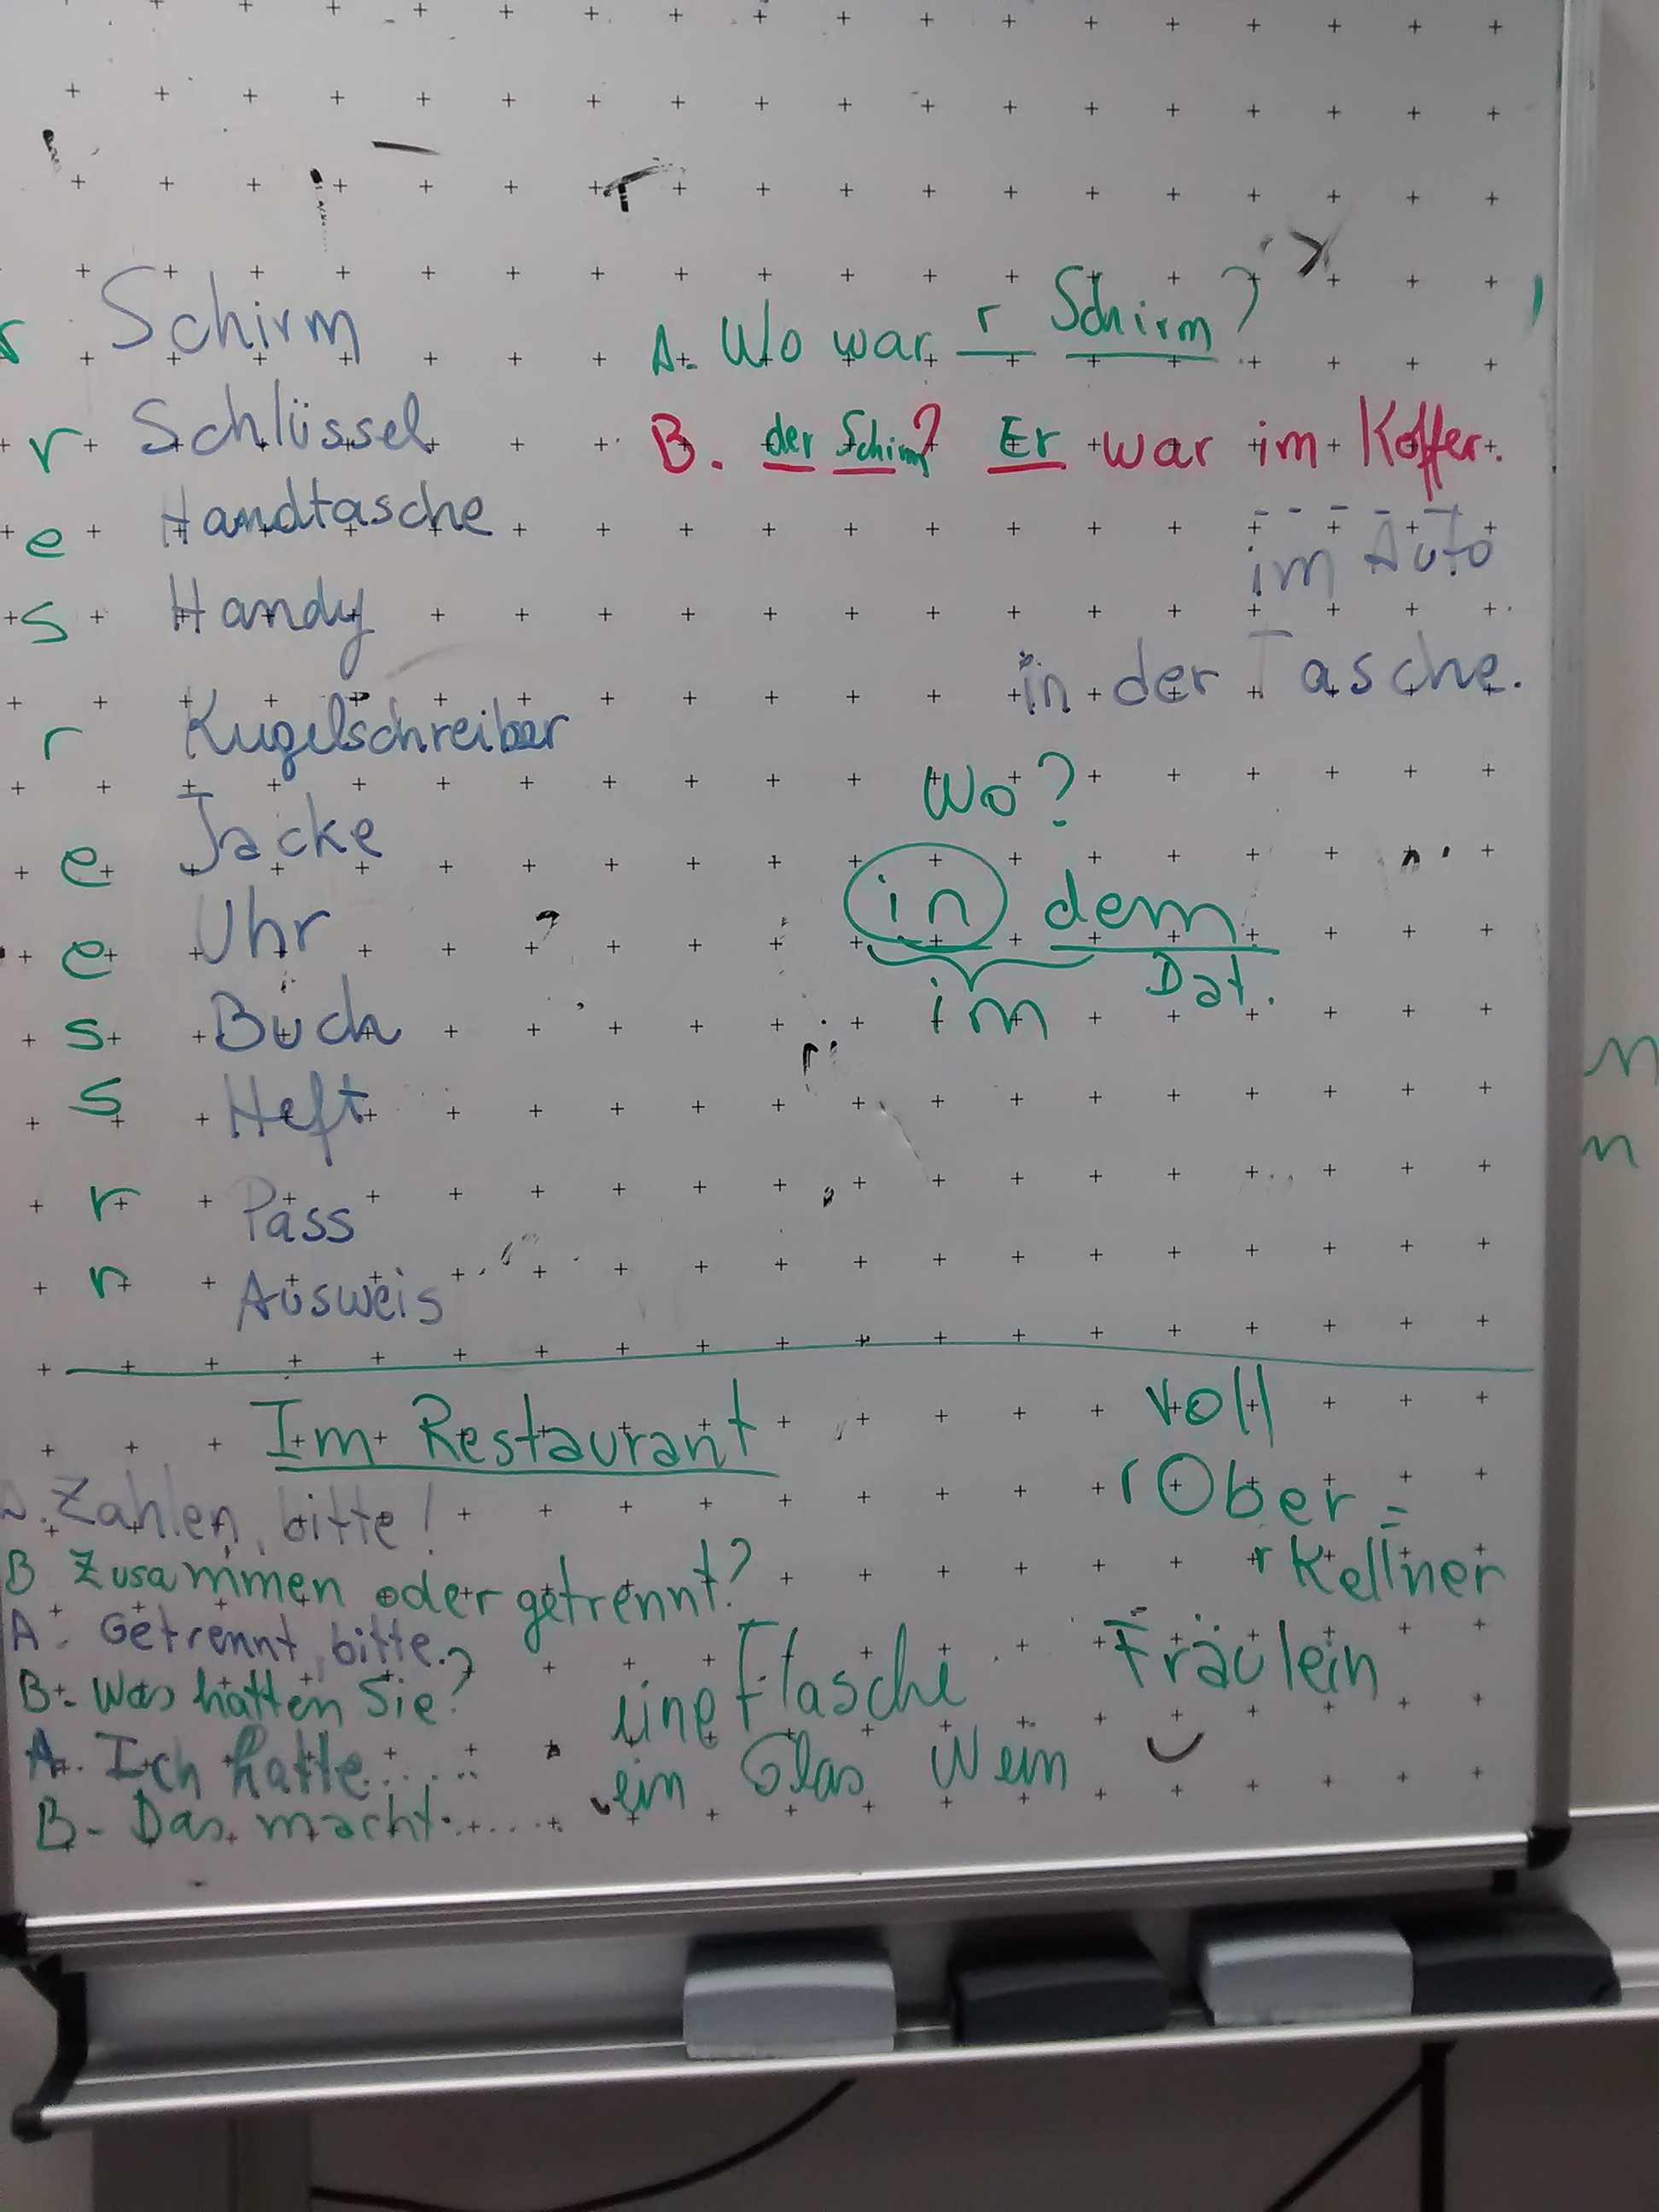 r Schirm
r Schlüssel
e Handtasche
s Handy
r Kugelschreiber
e Jacke
e Uhr
s Buch
s Heft
r Pass
r Ausweis
A. Wo war r Schirm?
B. der Schirm? Er war im Koffer.
im Auto
in der Tasche.
Wo?
in dem
im Dat.
Im Restaurant
A. Zahlen, bitte!
B Zusammen oder getrennt?
A. Getrennt, bitte.
B. Was hatten Sie?
A. Ich hatte......
B- Das macht......
eine Flasche
ein Glas Wein
voll
r Ober =
r Kellner
Fräulein